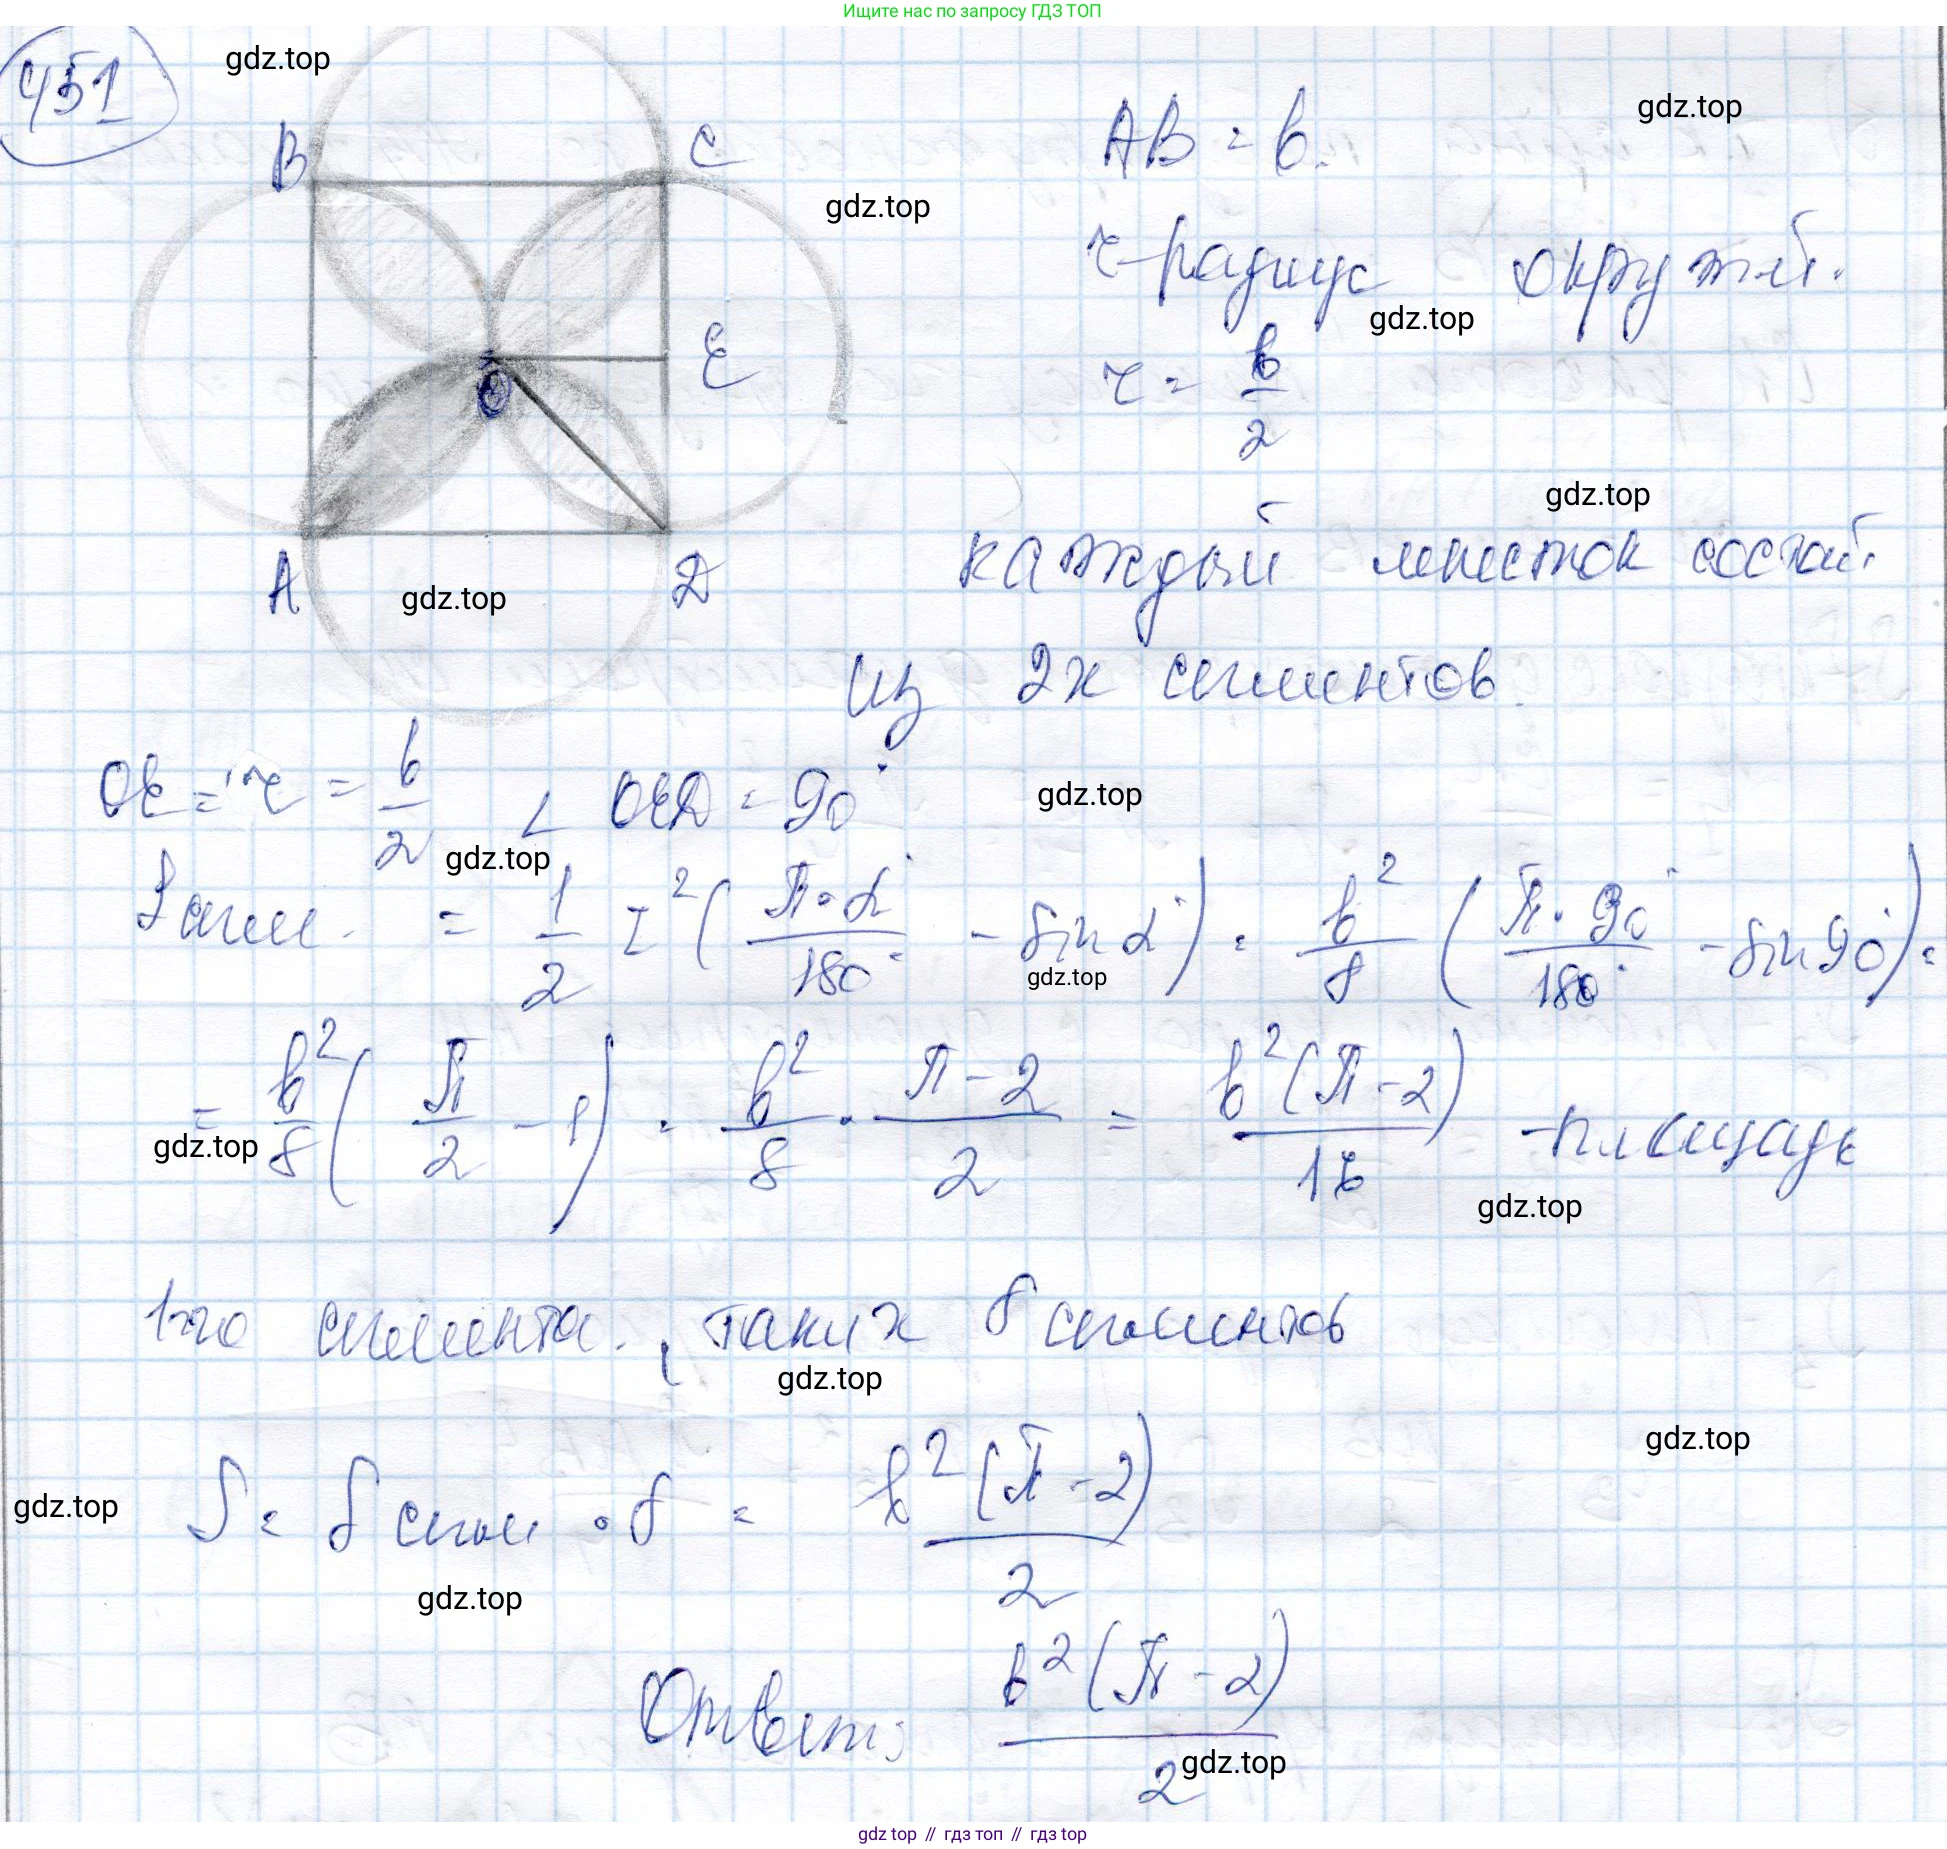 Ищите нас по запросу ГДЗ ТОП
451
gdz.top
B
C
AB = b.
gdz.top
gdz.top
r - радиус окружн.
gdz.top
E
r = b/2
O
gdz.top
A
D
gdz.top
каждый лепесток состоит
из 2х сегментов.
OE = r = b/2 ∠ OED = 90°
gdz.top
gdz.top
Sсегм. = 1/2 r² (π · α°/180° - sin α°) = b²/8 (π · 90°/180° - sin 90°) =
gdz.top
= b²/8 (π/2 - 1) = b²/8 · π - 2/2 = b²(π - 2)/16 - площадь
gdz.top
gdz.top
1-го сегмента, таких 8 сегментов
gdz.top
gdz.top
S = Sсегм · 8 = b²(π - 2)/2
gdz.top
gdz.top
Ответ: b²(π - 2)/2
gdz.top
gdz top // гдз топ // гдз top